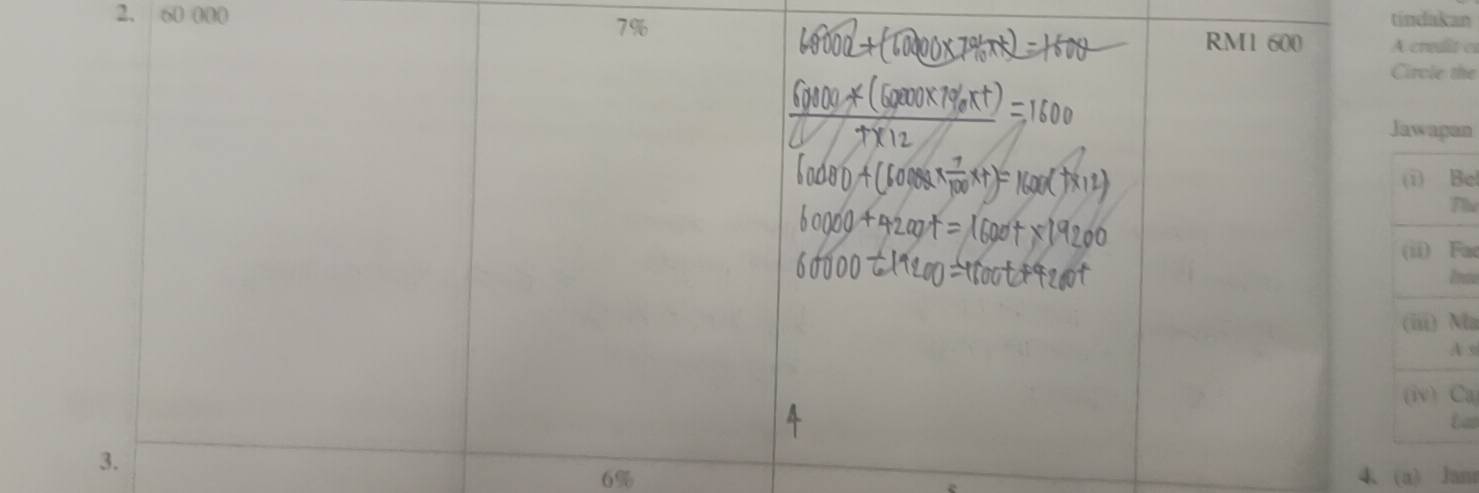 2. 60 000 7% RM1 600
60000+(60000×7%×t)=1600
60000+(60000×7%×t) / t×12 =1600
60000+(60000×7/100×t)=1600(t×12)
60000+4200t=1600t×19200
60000÷19200=1600t+4200t
4
3. 6%
tindakan
A credit c
Circle the
Jawapan
(i) Bel
The
(ii) Fac
(iii) Ma
A s
(iv) Ca
4. (a) Jam